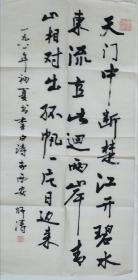 天门中断楚江开碧水
东流直此迴两岸青
山相对出孤帆一片日边来
一九八六年初夏书李白诗于西安